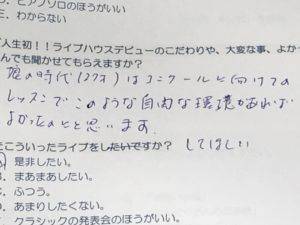 E. わからない
「人生初！！ライブハウスデビューのこだわりや、大変な事、よかっ
んでも聞かせてもらえますか？
の時代(27才)はコンクールに向けての
レッスンでこのような自由な環境があれば
よかったのにと思います.
たこういったライブをしたいですか？ してほしい
是非したい。
B. まあまあしたい。
C. ふつう。
D. あまりしたくない。
クラシックの発表会のほうがいい。